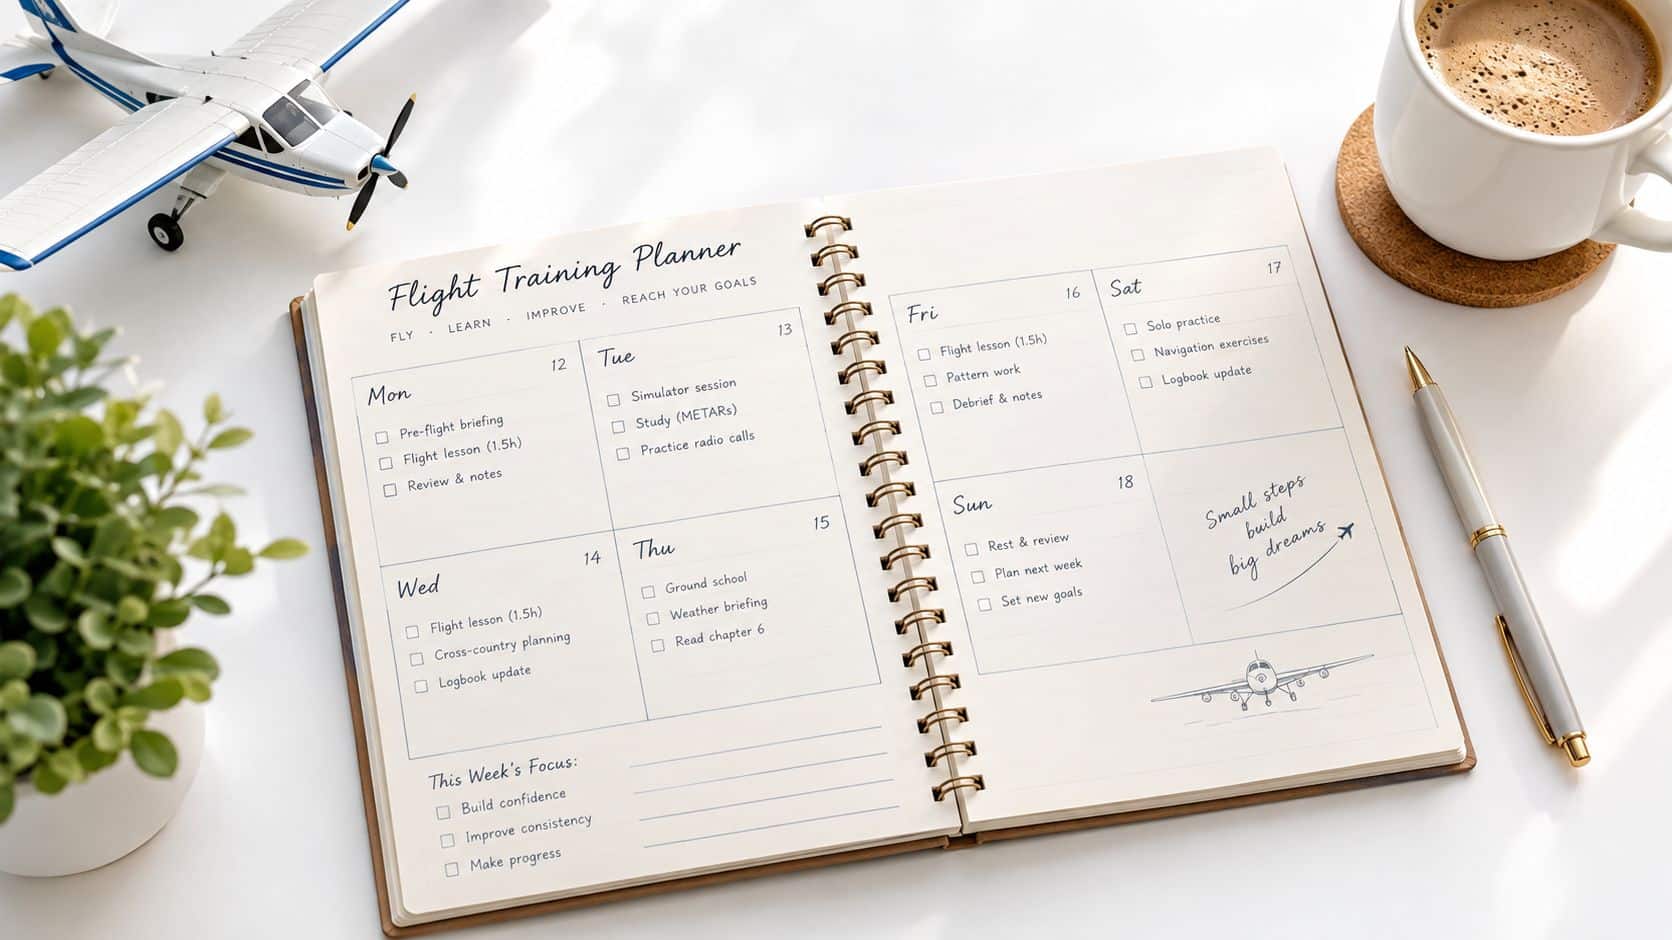 Flight Training Planner
FLY · LEARN · IMPROVE · REACH YOUR GOALS
Mon 12
Pre-flight briefing
Flight lesson (1.5h)
Review & notes
Tue 13
Simulator session
Study (METARs)
Practice radio calls
Wed 14
Flight lesson (1.5h)
Cross-country planning
Logbook update
Thu 15
Ground school
Weather briefing
Read chapter 6
This Week's Focus:
Build confidence
Improve consistency
Make progress
Fri 16
Flight lesson (1.5h)
Pattern work
Debrief & notes
Sat 17
Solo practice
Navigation exercises
Logbook update
Sun 18
Rest & review
Plan next week
Set new goals
Small steps
build
big dreams